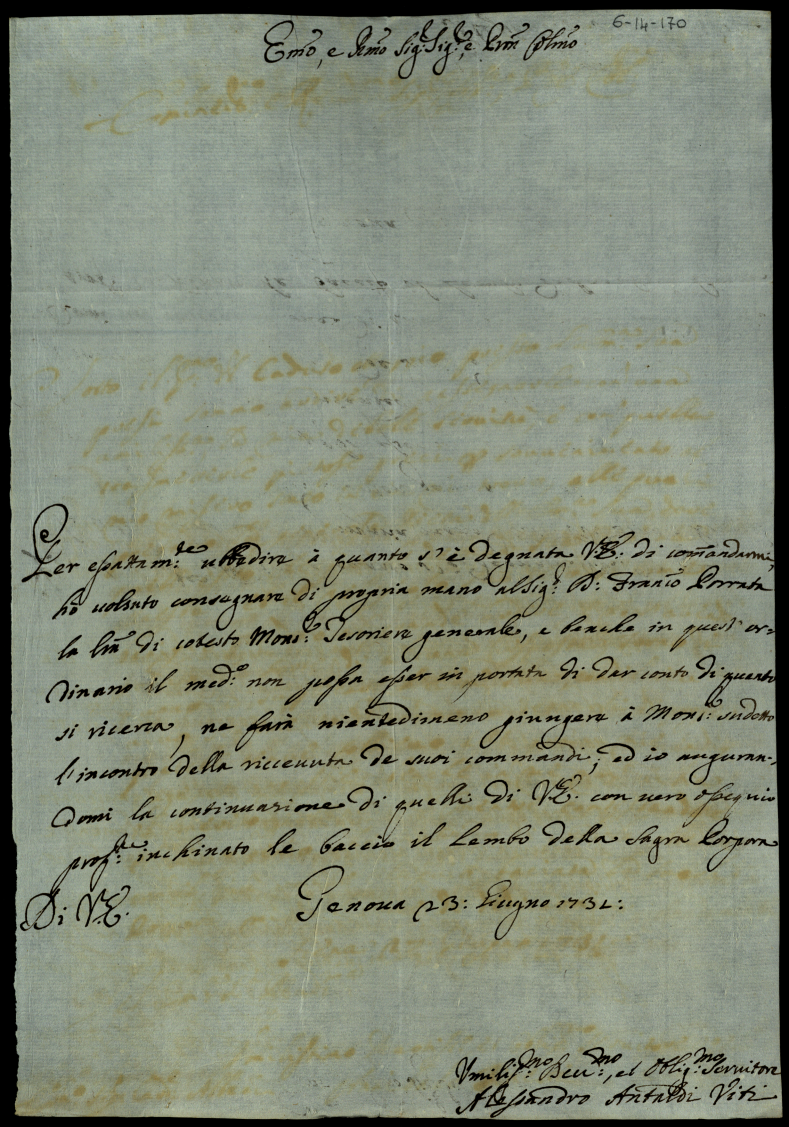 6-14-170
Emo, e Rmo Sigr. Sigr., e Prñ Cplmo
Per esattamte. ubbedire à quanto s'è degnata V.E. di comandarmi,
hò voluto consegnare di propria mano al Sigr. D: Franco Porrata
la lrã di cotesto Monsr. Tesoriere generale, e benche in quest'or-
dinario il medo. non possa esser in portata di dar conto di quanto
si ricerca, ne farà nientedimeno giungere à Monsr. sudetto
l'incontro della riceuuta de suoi commandi; ed io auguran-
domi la continuazione di quelli di V.E. con vero ossequio
profte. inchinato le baccio il Lembo della Sagra Porpora
Di V.E. Genoua 23: Giugno 1731:
Umilismo. Deumo., et Obligmo Seruitore
Alessandro Antaldi Viti